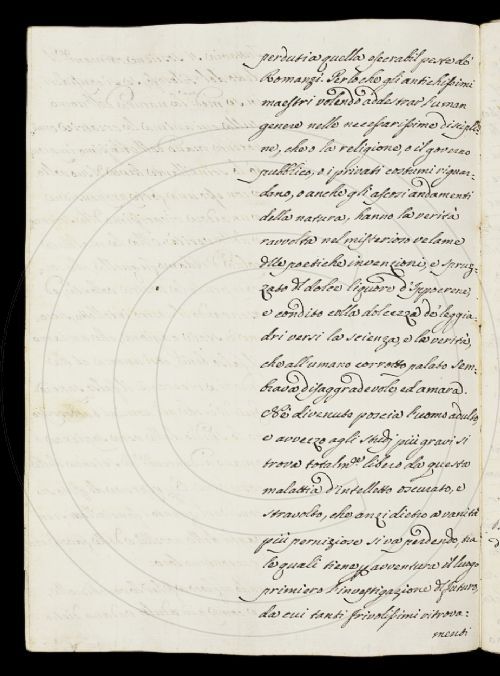 perdutia quella esecrabil peste de'
Romanzi. Perloche gli antichissimi
maestri volendo addestrar l'uman
genere nelle necessarissime discipli=
ne, che o la religione, o il governo
pubblico, o i privati costumi riguar=
dano, o anche gli ascosi andamenti
della natura, hanno la verità
ravvolta nel misterioso velame
delle poetiche invenzioni, e spruz=
zato del dolce liquore d'Ippocrene,
e condito colla dolcezza de' leggia=
dri versi la scienza, e la verità,
che all'umano corrotto palato sem=
brava disaggradevole, ed amara.
Nè divenuto poscia l'uomo adulto,
e avvezzo agli studj più gravi si
trova totalm.te libero da questa
malattia d'intelletto oscurato, e
stravolto, che anzi dietro a vanità
più perniziose si va perdendo, tra
le quali tiene per avventura il luogo
primiero l'investigazione del futuro,
da cui tanti frivolissimi ritrova=
menti